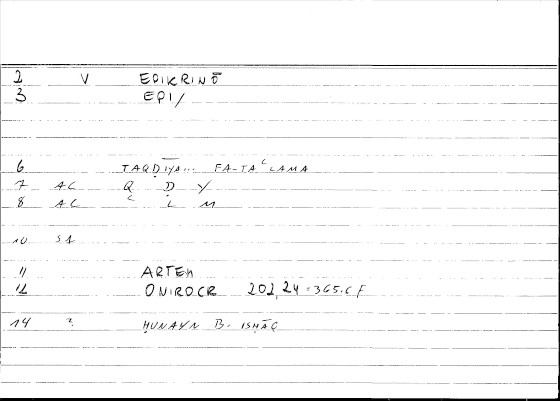 2 V EPIKRINŌ
3 EPI/
6 TAQḌIYA... FA-TAʿLAMA
7 AC Q Ḍ Y
8 AC ʿ L M
10 S1
11 ARTEM
12 ONIROCR 202,24 = 365.CF
14 ḤUNAYN B. ISḤĀQ